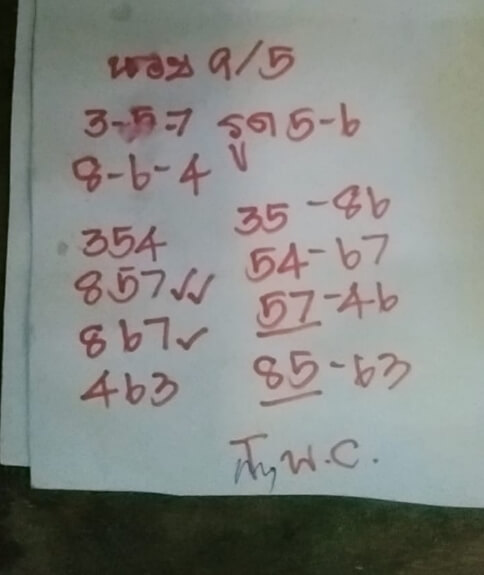 หวย 9/5
3-5-7 รูด 5-6
8-6-4
354
857✓✓
867✓
463
35-86
54-67
57-46
85-63
พ.C.